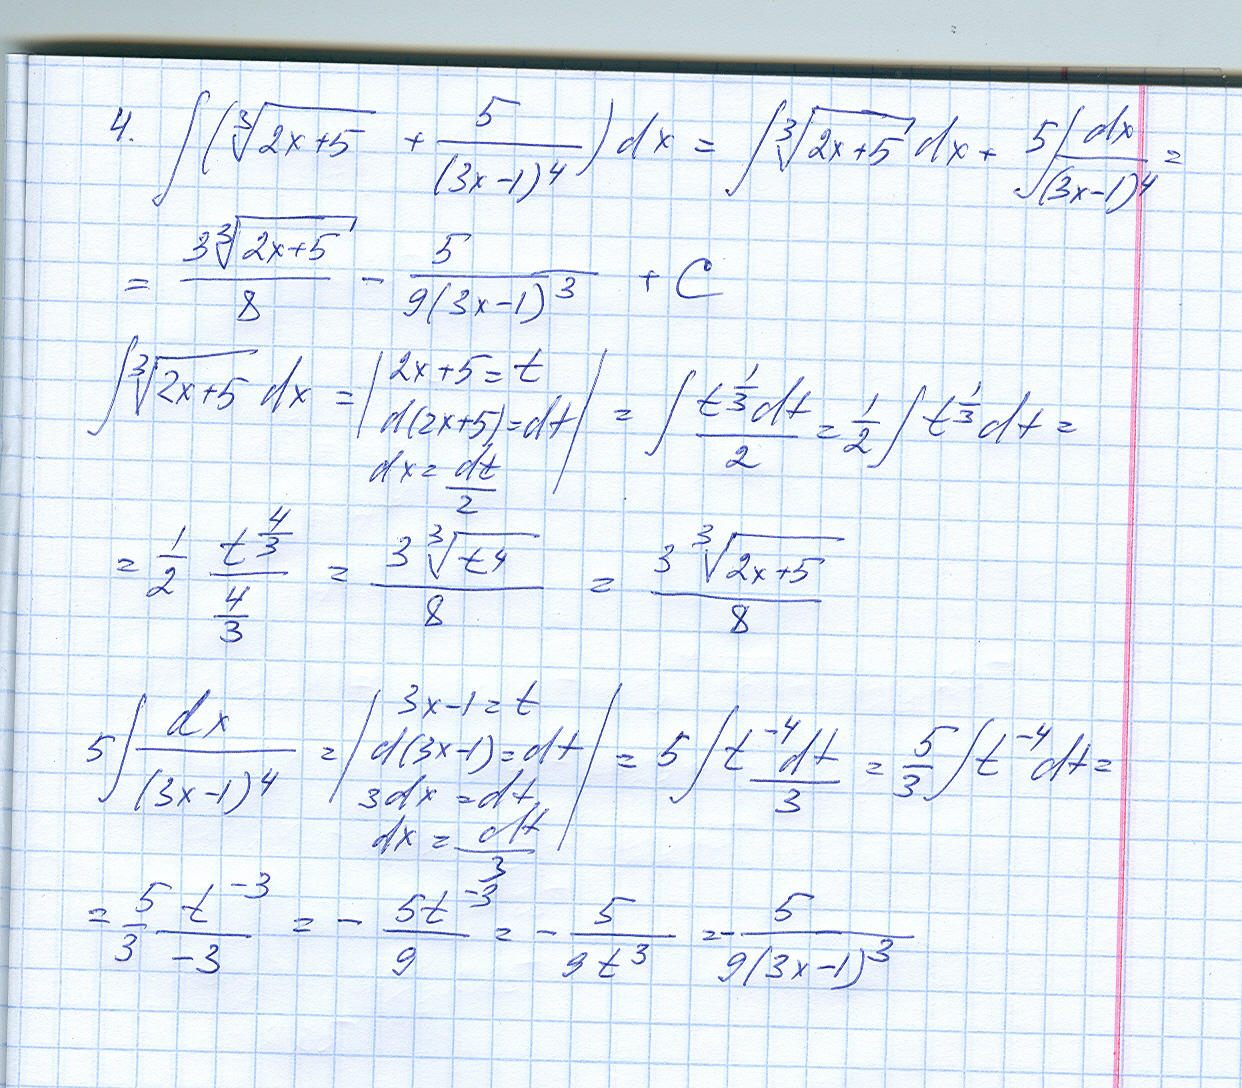 4. ∫(∛(2x+5) + 5/(3x-1)^4) dx = ∫∛(2x+5) dx + 5∫dx/(3x-1)^4 =
= 3∛(2x+5)/8 - 5/(9(3x-1)^3) + C
∫∛(2x+5) dx = | 2x+5=t
d(2x+5)=dt
dx = dt/2 | = ∫ t^(1/3)dt/2 = 1/2 ∫ t^(1/3) dt =
= 1/2 t^(4/3)/(4/3) = 3∛(t^4)/8 = 3∛(2x+5)/8
5∫dx/(3x-1)^4 = | 3x-1=t
d(3x-1)=dt
3dx=dt
dx = dt/3 | = 5∫ t^(-4) dt/3 = 5/3 ∫ t^(-4) dt =
= 5/3 t^(-3)/(-3) = - 5t^(-3)/9 = - 5/(9t^3) = - 5/(9(3x-1)^3)